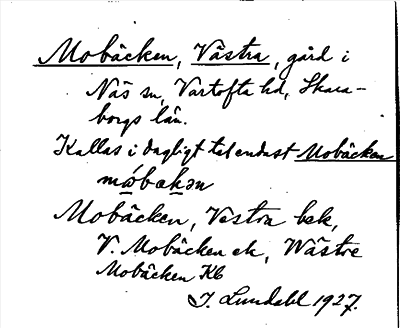 Mobäcken, Västra, gård i
Näs sn, Vartofta hd, Skara-
borgs län.
Kallas i dagligt tal endast Mobäcken
mǿbækən
Mobäcken, Vestra bek,
V. Mobäcken ek, Wästre
Mobäcken Kb
J. Lundahl 1927.